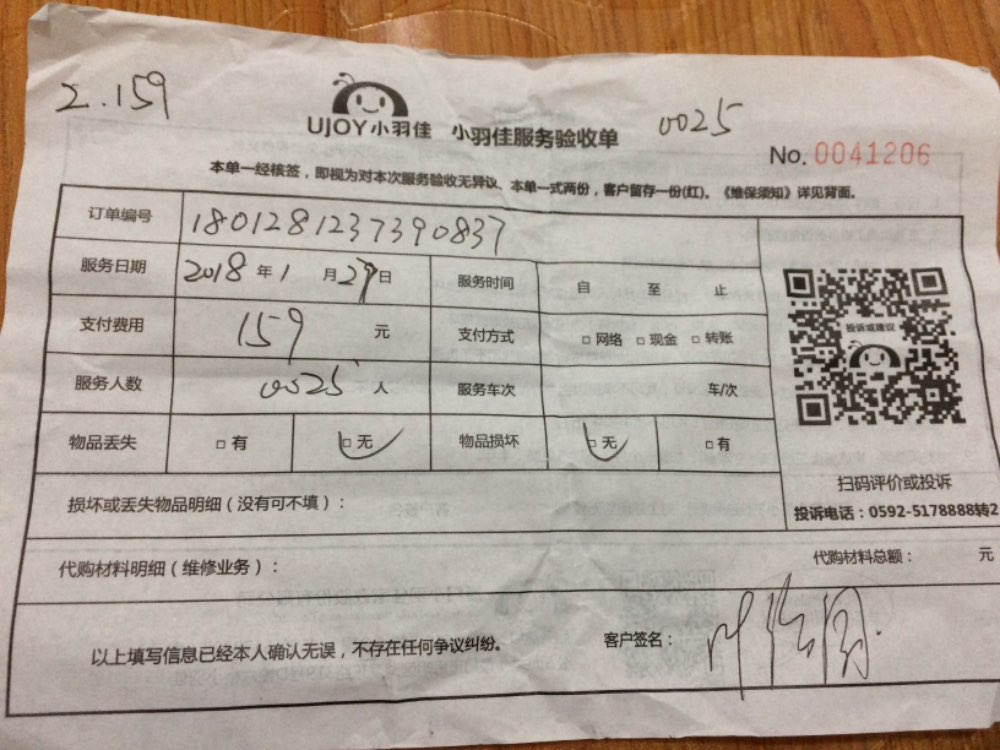 2.159
UJOY小羽佳 小羽佳服务验收单
0025
No. 0041206
本单一经核签，即视为对本次服务验收无异议、本单一式两份，客户留存一份(红)。《维保须知》详见背面。
订单编号 1801281237390837
服务日期 2018年1月29日 服务时间 自 至 止
支付费用 159 元 支付方式 □网络 □现金 □转账
投诉或建议
服务人数 0025 人 服务车次 车/次
物品丢失 □有 □无 物品损坏 □无 □有
扫码评价或投诉
损坏或丢失物品明细（没有可不填）：
投诉电话：0592-5178888转2
代购材料明细（维修业务）： 代购材料总额： 元
以上填写信息已经本人确认无误，不存在任何争议纠纷。 客户签名：